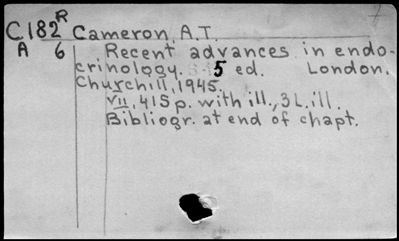 C182R Cameron, A.T.
A 6 Recent advances in endo-
crinology. 5 ed. London,
Churchill, 1945.
VII, 415 p. with ill., 3 L. ill.
Bibliogr. at end of chapt.